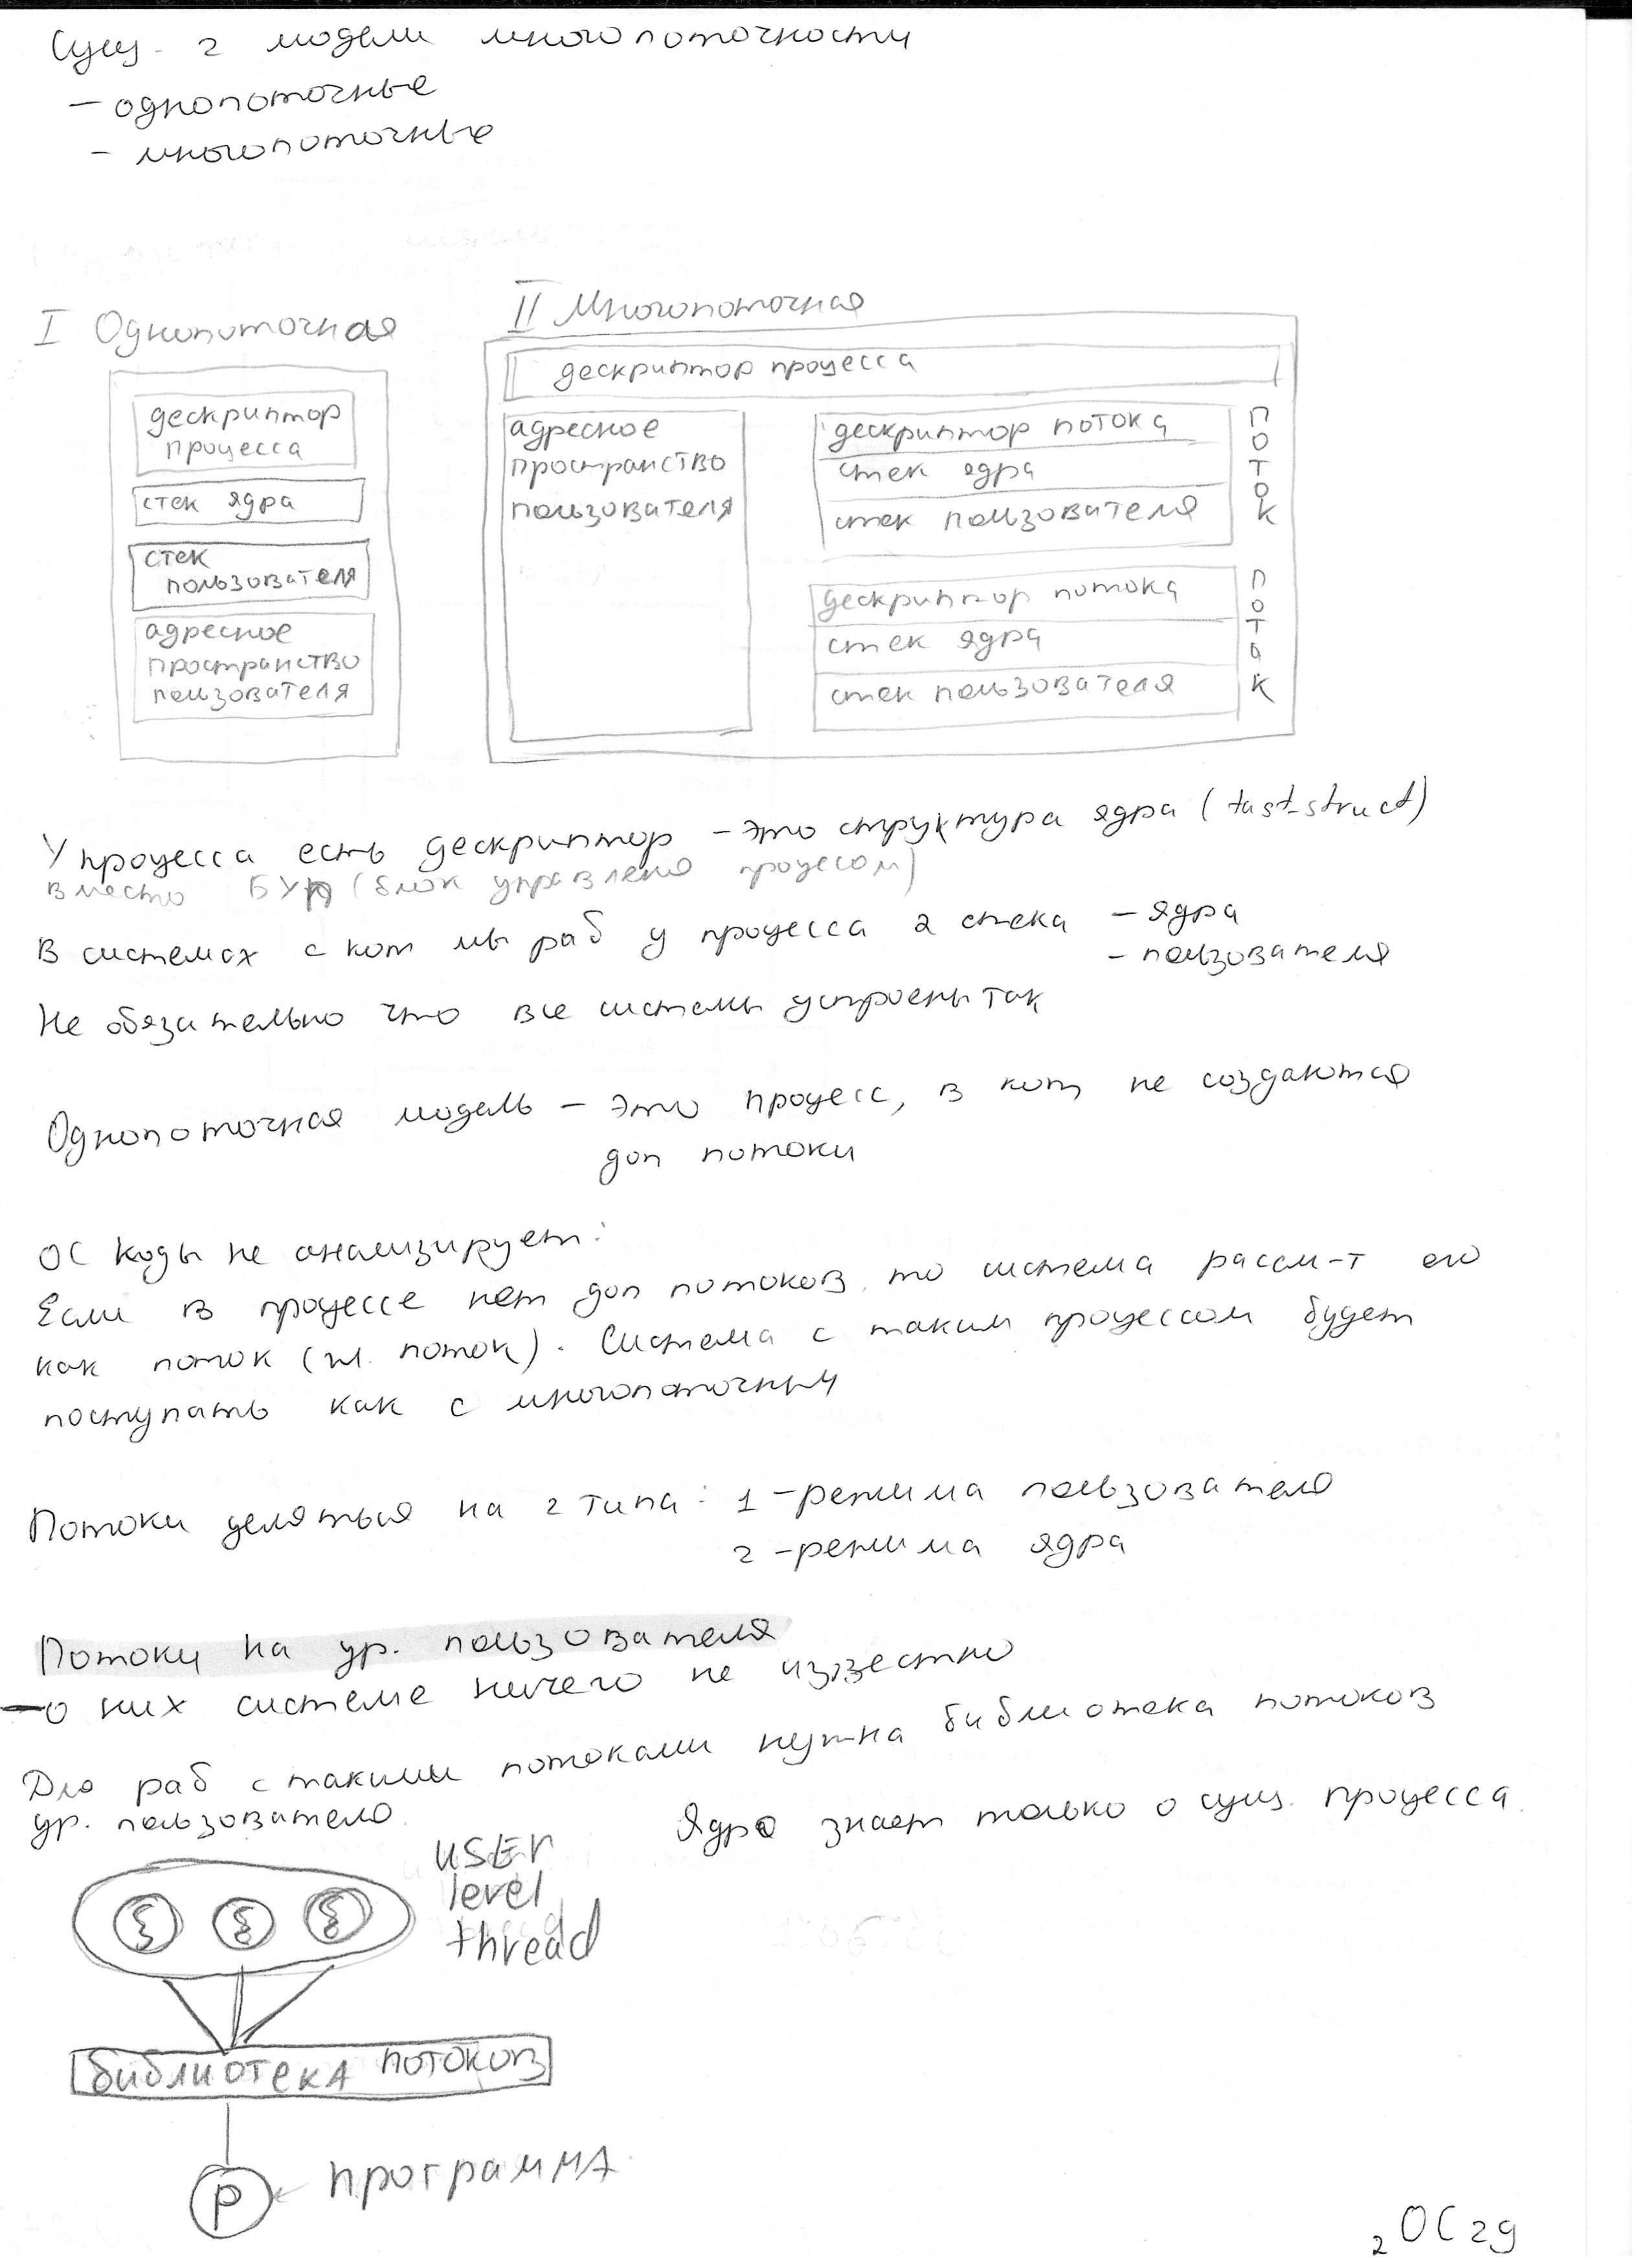 Сущ. 2 модели многопоточности
- однопоточные
- многопоточные
I Однопоточная
дескриптор
процесса
стек ядра
стек
пользователя
адресное
пространство
пользователя
II Многопоточная
дескриптор процесса
адресное
пространство
пользователя
дескриптор потока
стек ядра
стек пользователя
поток
дескриптор потока
стек ядра
стек пользователя
поток
У процесса есть дескриптор - это структура ядра (tast_struct)
вместо БУП (блок управления процесом)
В системах с кот мы раб у процесса 2 стека - ядра
- пользователя
Не обязательно что все системы устроены так
Однопоточная модель - это процесс, в кот не создаются
доп потоки
ОС коды не анализирует:
Если в процессе нет доп потоков, то система рассм-т его
как поток (гл. поток). Система с таким процессом будет
поступать как с многопоточным
Потоки делятся на 2 типа: 1 - режима пользователя
2 - режима ядра
Потоки на ур. пользователя
- о них системе ничего не известно
Для раб с такими потоками нужна библиотека потоков
ур. пользователя.
Ядро знает только о сущ. процесса.
user
level
thread
библиотека потоков
P
программа
2 ОС 29